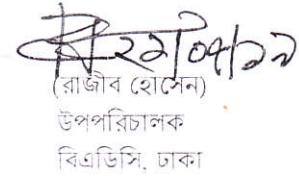 (রাজীব হোসেন)
উপপরিচালক
বিএডিসি, ঢাকা